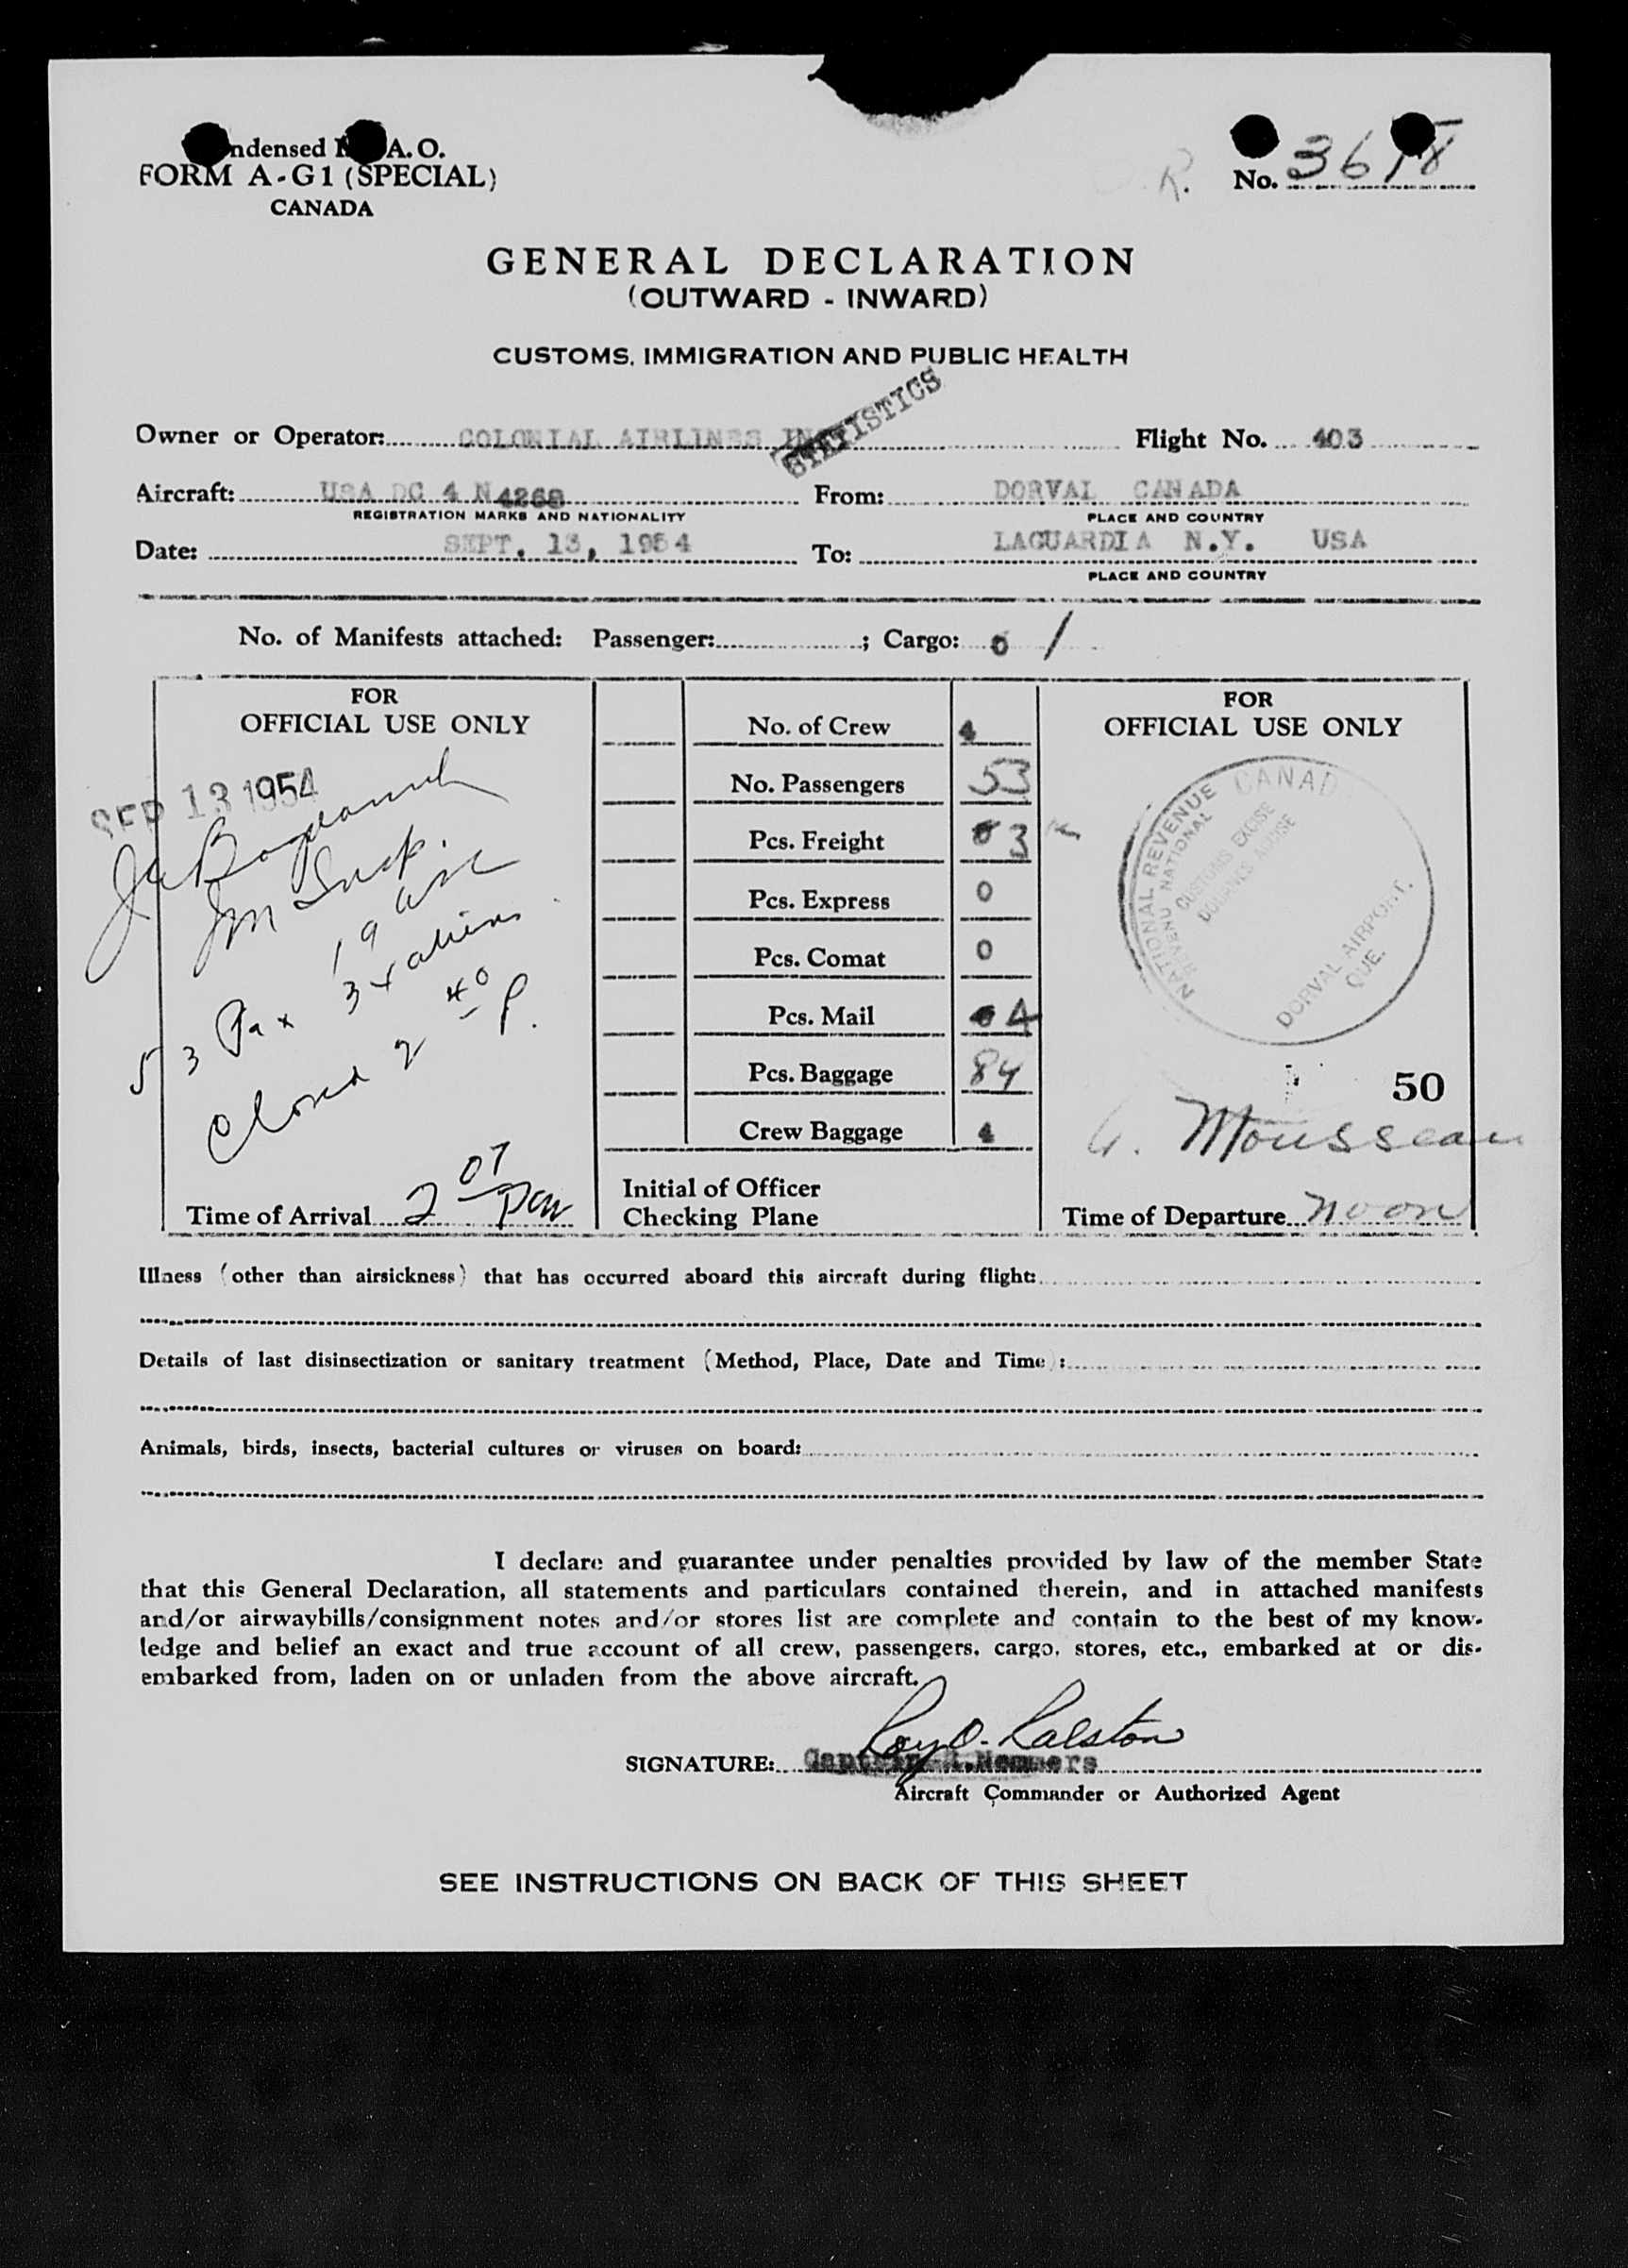 ndensed A. O.
FORM A-G1 (SPECIAL)
CANADA
R.
No. 36
GENERAL DECLARATION
(OUTWARD - INWARD)
CUSTOMS, IMMIGRATION AND PUBLIC HEALTH
STATISTICS
Owner or Operator: COLONIAL AIRLINES INC Flight No. 403
Aircraft: USA DC 4 N4268 From: DORVAL CANADA
REGISTRATION MARKS AND NATIONALITY PLACE AND COUNTRY
Date: SEPT. 13, 1954 To: LAGUARDIA N.Y. USA
PLACE AND COUNTRY
No. of Manifests attached: Passenger: ; Cargo: 0 /
FOR
OFFICIAL USE ONLY
SEP 13 1954
Insp.
19 
34 aliens
53 Pax
Closed 2 40 P.
Time of Arrival 2 07 pm
No. of Crew 4
No. Passengers 53
Pcs. Freight 0 3
Pcs. Express 0
Pcs. Comat 0
Pcs. Mail 4
Pcs. Baggage 84
Crew Baggage 4
Initial of Officer
Checking Plane
FOR
OFFICIAL USE ONLY
NATIONAL REVENUE CANADA
REVENU NATIONAL
CUSTOMS EXCISE
DOUANES ACCISE
DORVAL AIRPORT,
QUE.
50
G. Mousseau
Time of Departure noon
Illness (other than airsickness) that has occurred aboard this aircraft during flight:
Details of last disinsectization or sanitary treatment (Method, Place, Date and Time):
Animals, birds, insects, bacterial cultures or viruses on board:
I declare and guarantee under penalties provided by law of the member State
that this General Declaration, all statements and particulars contained therein, and in attached manifests
and/or airwaybills/consignment notes and/or stores list are complete and contain to the best of my know-
ledge and belief an exact and true account of all crew, passengers, cargo, stores, etc., embarked at or dis-
embarked from, laden on or unladen from the above aircraft.
Roy O. Ralston
SIGNATURE: Captain Nemmers
Aircraft Commander or Authorized Agent
SEE INSTRUCTIONS ON BACK OF THIS SHEET